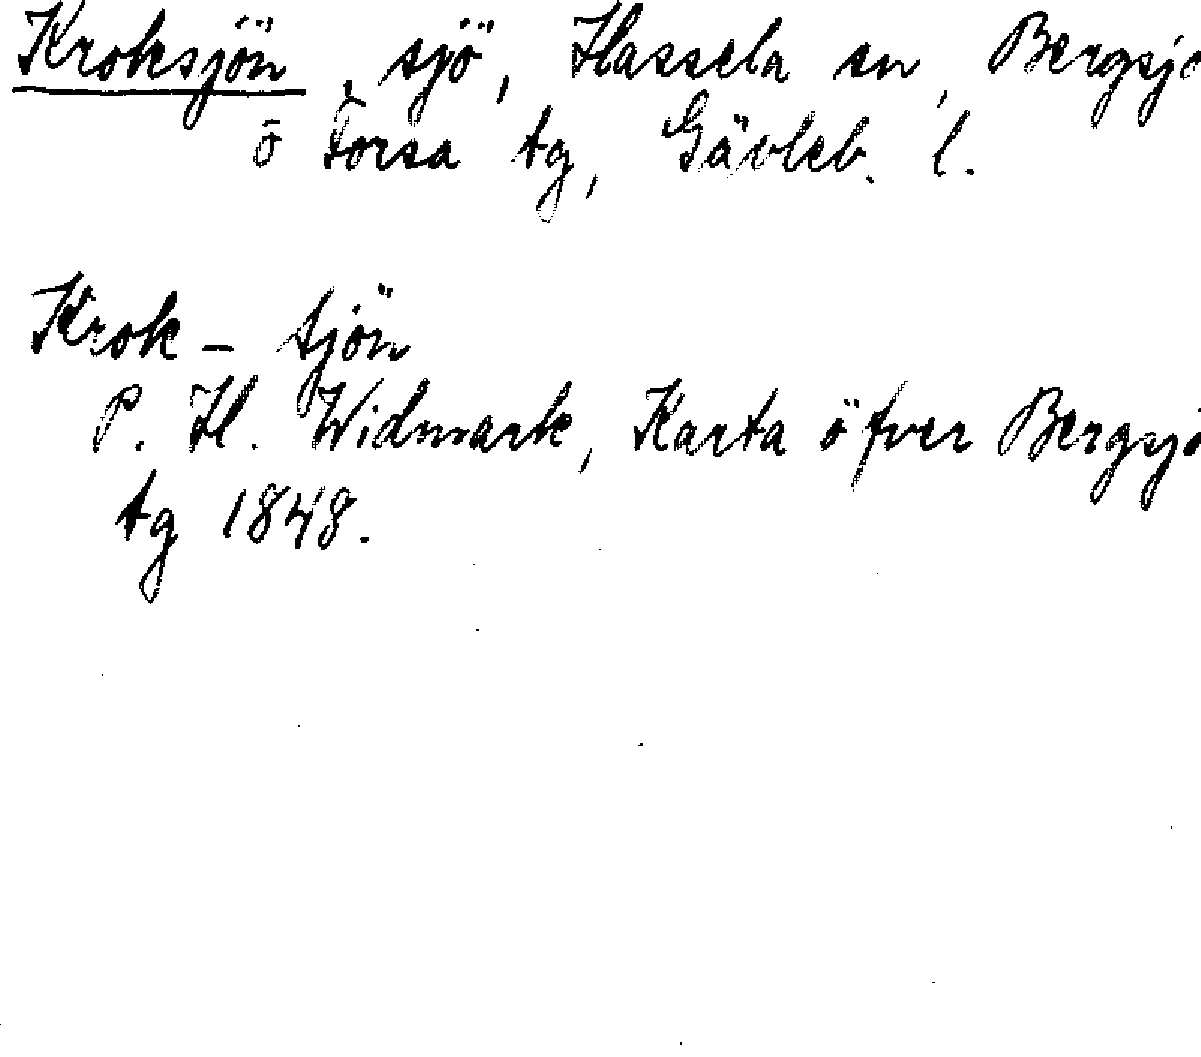 Kroksjön, sjö, Hassela sn, Bergsjö
o Forsa tg, Gävleb. l.
Krok - tjön
P. H. Widmark, Karta öfver Bergsjö
tg 1848.